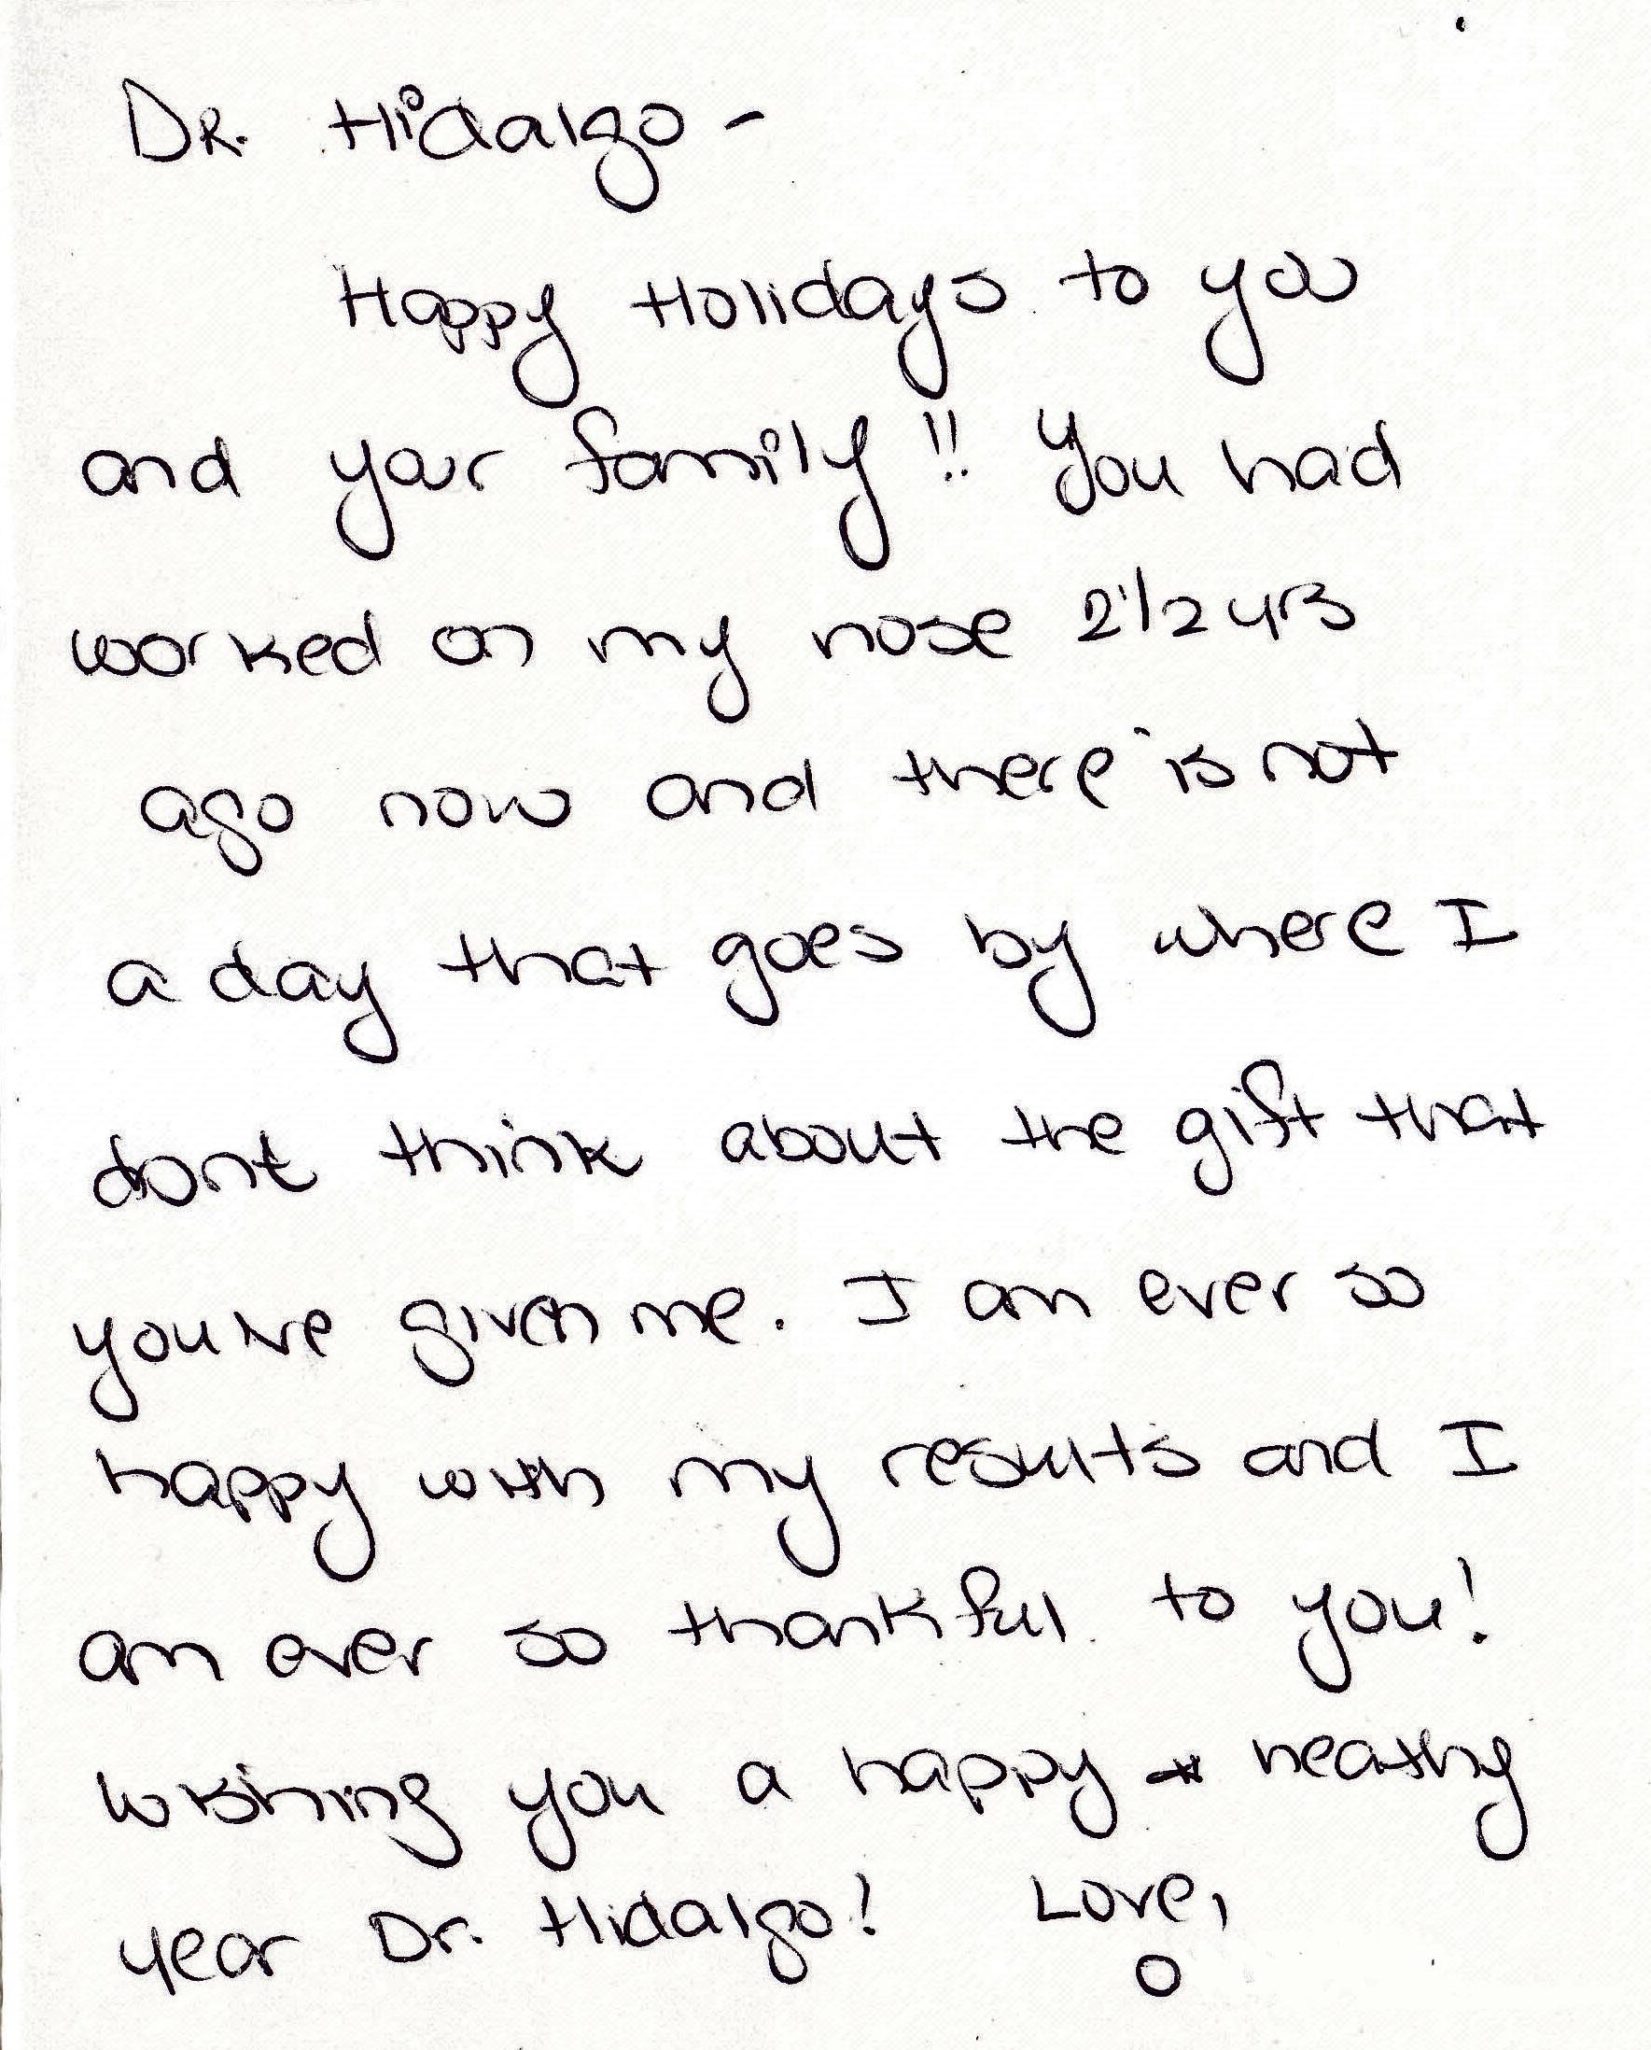 DR. Hidalgo -
Happy Holidays to you
and your family!! You had
worked on my nose 2 1/2 yrs
ago now and there is not
a day that goes by where I
dont think about the gift that
you've given me. I am ever so
happy with my results and I
am ever so thankful to you!
wishing you a happy + heathy
year Dr. Hidalgo! Love,
O